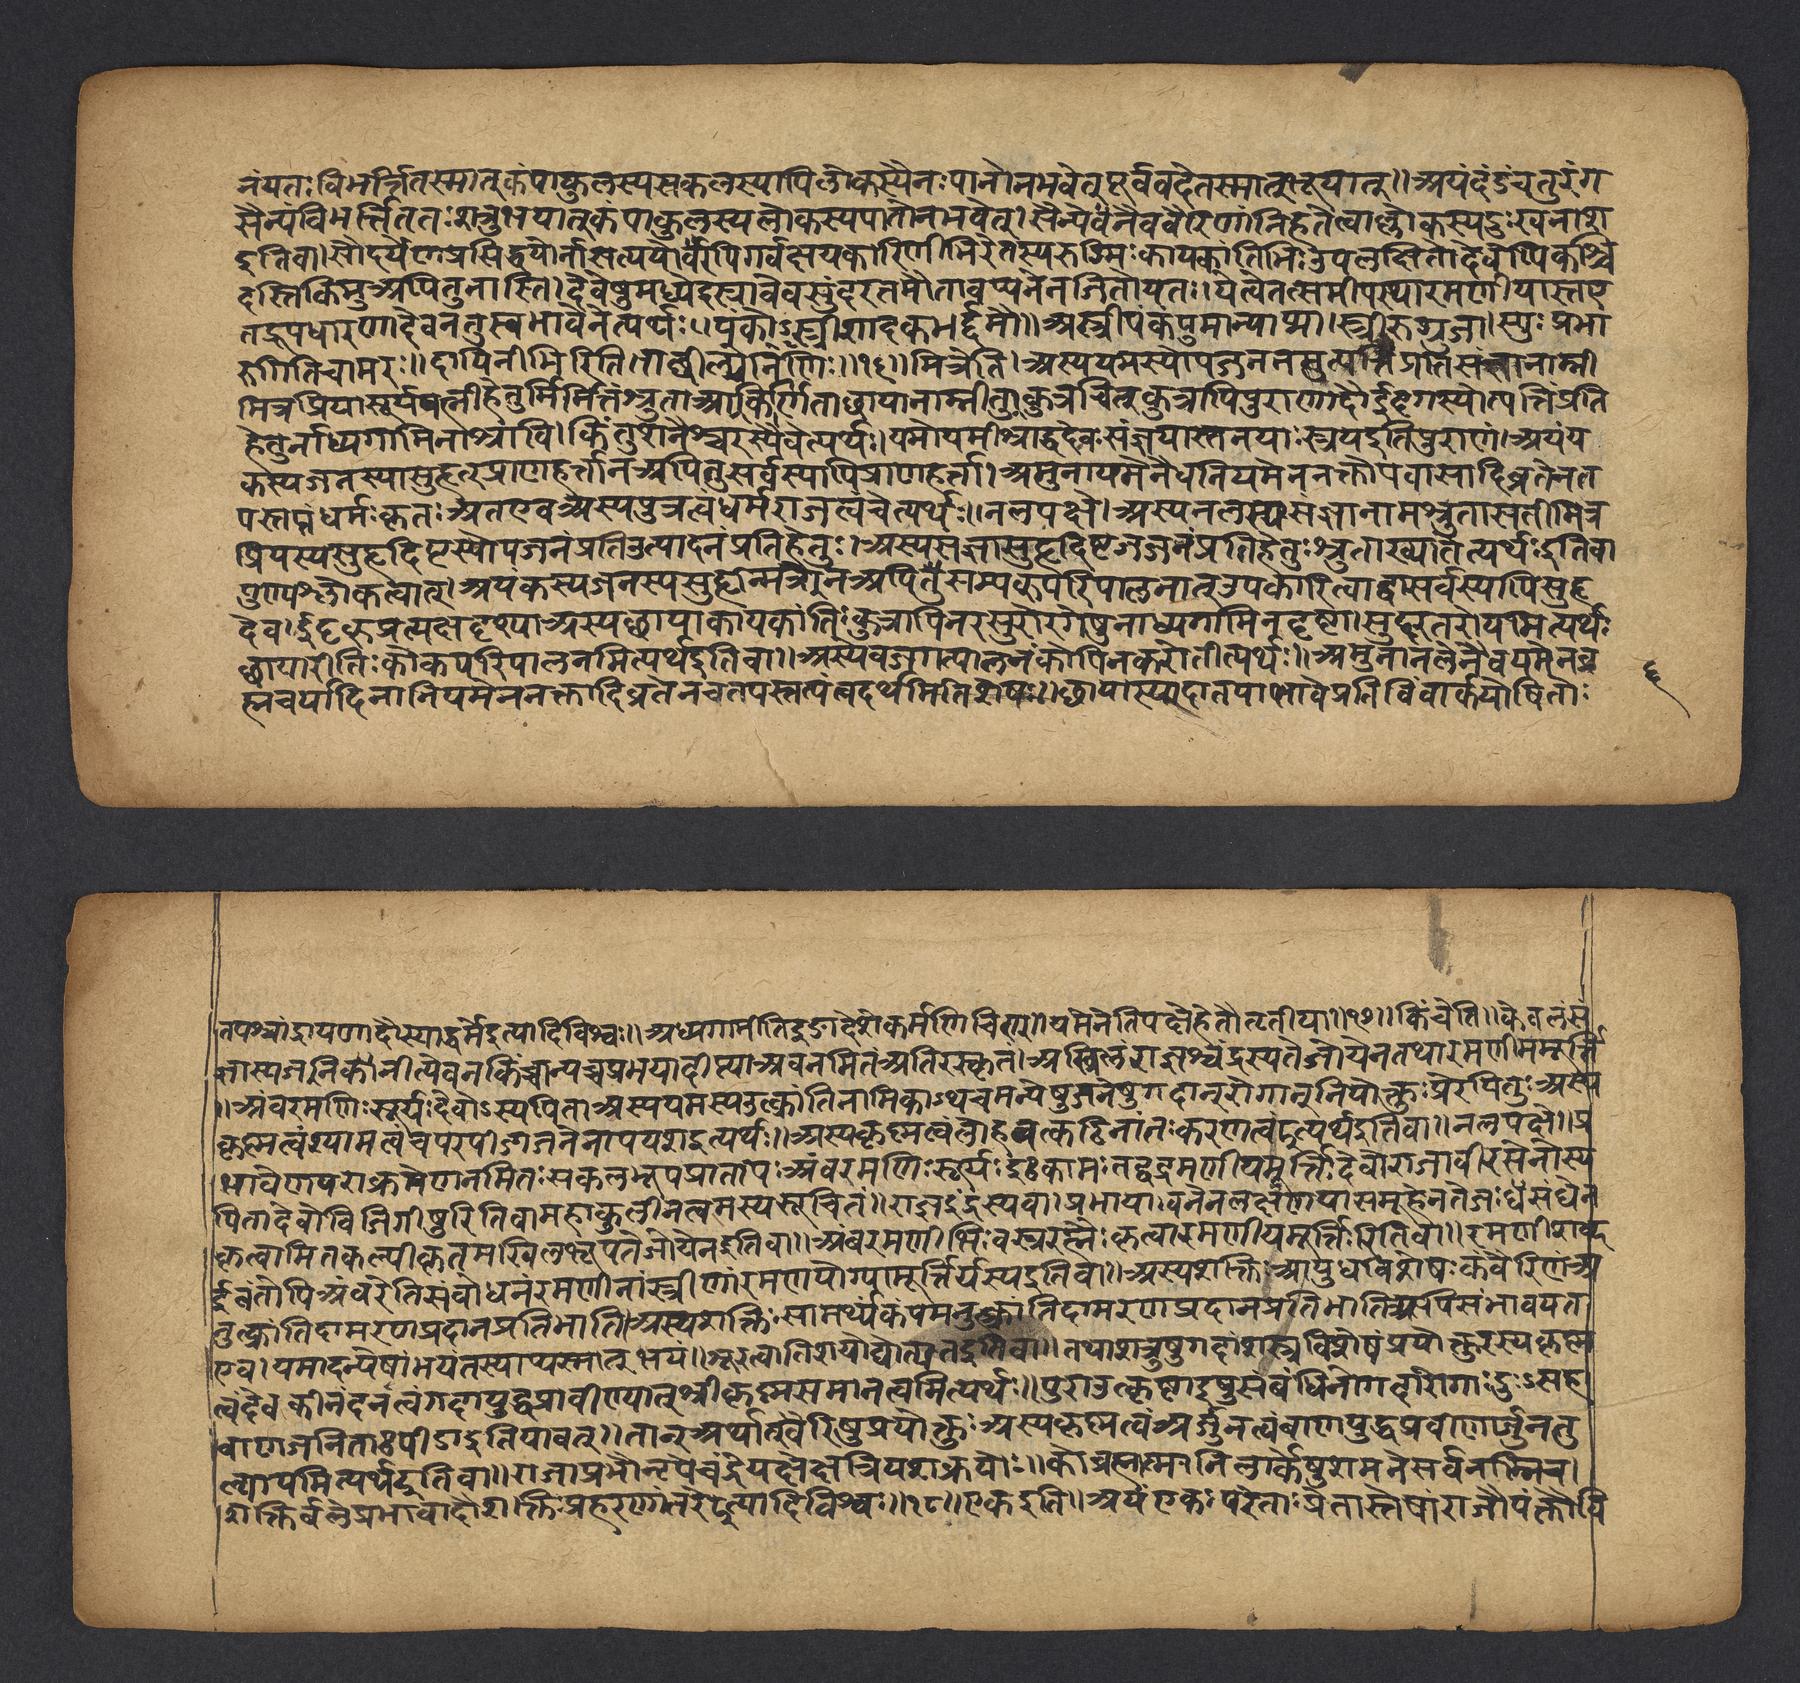 नंयतःविभर्त्तितस्मात्कंपाकुलस्यसकलस्यापिलोकस्यैनःपानोनभवेत् सर्वववहेतस्मात्तद्रूपात्॥अयंदंडंचतुरंग
सैन्यंविभर्त्तिततःशत्रुभयात्कंपाकुलस्यलोकस्यपातोनभवेत्।सैन्येनैववैरिणांनिहतत्वाल्लोकस्यदुःखनाश
इतिवा।सौंदर्येणप्रसिद्धयोर्नासत्ययोर्वैरपिगर्वक्षयकारिणीभिरेतस्यरुग्भिःकायकांतिभिःउपलक्षितोदेवेष्वपिकश्चि
दस्तिकिमुअपितुनास्ति।देवेषुमध्येदस्रावेवसुंदरतमौतावप्यनेनजितौयतः।येत्वेतत्समीपस्थारमणीयास्तए
तद्रूपधारणादेवनतुस्वभावेनेत्यर्थः॥पंकोऽस्त्रीशादकर्द्दमौ॥अस्त्रीपंकंपुमान्पाप्मा।स्त्रीरुग्रुजा।स्युःप्रभा
रुगितिचामरः॥दायिनीभिरितिताछील्येनिणिः॥१६॥मित्रेति।अस्ययमस्योपजननसमुत्पत्तिंप्रतिसंज्ञानाम्नी
मित्रप्रियासूर्यपत्नीहेतुर्निमित्तंश्रुताआकर्णिताछायानाम्नीतुकुत्रचित्कुत्रापिपुराणादौईदृगस्योत्पत्तिंप्रति
हेतुर्नाध्यगामिनाश्रावि।किंतुशनैश्चरस्यैवेत्यर्थः।यमोयमीश्राद्धदेवःसंज्ञायास्तनयास्त्रयइतिपुराणं।अयंय
कस्यजनस्यासुहृत्प्राणहर्त्तानअपितुसर्वस्यापिप्राणहर्त्ता।अमुनायमेनैवनियमेननक्तोपवासादिव्रतेनत
पस्तप्तंधर्मःकृतःअतएवअस्यपुत्रत्वधर्मराजत्वंचेत्यर्थः।नलपक्षे।अस्यनलस्यसंज्ञानामश्रुतासतीमित्र
प्रियस्यसुहृदिष्टस्योपजनंप्रतिउत्पादनंप्रतिहेतुः।अस्यसंज्ञासुहृदिष्टजननंप्रतिहेतुःश्रुताख्यातेत्यर्थःइतिवा
पुण्यश्लोकत्वात्।अयंकस्यजनस्यसुहृन्मित्रंनअपितुसम्यक्परिपालनात्उपकारित्वाद्वासर्वस्यापिसुहृ
देव।ईदृक्प्रत्यक्षदृश्याअस्यछायाकायकांतिःकुत्रापिनरसुरोरगेषुनाध्यगामिनदृष्टा।सुंदरतरोयमित्यर्थः
छायारीतिःकौकपरिपालनमित्यर्थइतिवा॥अस्येवजगत्पालनंकोपिनकरोतीत्यर्थः॥अमुनानलेनैवयमेनब्र
ह्मचर्यादिनानियमेननक्तादिव्रतेनचतपस्तप्तंत्वदर्थमितिशेषः॥छायास्यादातपाभावेप्रतिबिंबार्कयोषितोः
तपश्चांद्रायणादौस्याद्धर्मेइत्यादिविश्वः॥अध्यगामीतिइङादेशेकर्मणिचिण्।यमेनेतिपक्षेहेतौतृतीया॥१७॥किंचेति।केवलंसं
ज्ञास्यजनिकानीत्येवनकिंचान्यच्चप्रभयादीप्त्याअवनमितंअतिरस्कृतं।अखिलंराज्ञश्चंद्रस्यतेजोयेनतथारमणीयमूर्त्ति
॥अंबरमणिःसूर्यःदेवोऽस्यपिताअस्ययमस्यउत्क्रांतिनामिकाऽथचमन्येषुजनेषुगदान्रोगान्नियोक्तुःप्रेरयितुःअस्य
कृष्णत्वंश्यामलत्वंचपरपीडाजननेनापयशइत्यर्थः॥अस्यकृष्णत्वंलोहवत्कठिनांतःकरणत्वमित्यर्थइतिवा॥नलपक्षे॥प्र
भावेणपराक्रमेणनमितःसकलभूपप्रतापःअंबरमणिःसूर्यःइःकामःतद्वद्रमणीयमूर्त्तिर्देवोराजावीरसेनोस्य
पितादेवोविजिगीषुरितिवामहाकुलीनत्वमस्यसूचितं॥राज्ञइंद्रस्यवा।प्रभाया।वनेनलक्षणयासमूहेनतेजः
कृत्वामितकल्पीकृतमखिलभूपतेजोयेनइतिवा॥अंबरमणीभिःवस्त्ररत्नैःकृत्वारमणीयमूर्त्तिरितिवा॥रमणीशब्द
ईबंतोपिअंबरेतिसंबोधनंरमणीनांस्त्रीणांरमणयोग्यामूर्त्तिर्यस्यइतिवा॥अस्यशक्तिःआयुधविशेषःकंवैरिणंअ
नुत्क्रांतिदामरणप्रदानप्रतिभाति।अस्यशक्तिःसामर्थ्यंकंपमनुत्क्रांतिदामरणप्रदानप्रतिभातिअपिसंभावयत
एव।यमादन्येषांभयंतस्याप्यस्मात् भयं॥शूरत्वातिशयोद्योत्यतइतिवा॥तथाशत्रुषुगदांशस्त्रविशेषंप्रयोक्तुरस्यकृष्ण
त्वंदेवकीनंदनत्वंगदायुद्धप्रावीण्यात्श्रीकृष्णसमानत्वमित्यर्थः॥पुराउत्कृष्टाइषुसंबंधिनोगदारोगाःदुःसहा
बाणजनिताःपीडाइतियावत्।तान्अर्थात्वैरिषुप्रयोक्तुःअस्यकृष्णत्वंअर्जुनत्वंबाणयुद्धप्रवीणार्जुनतु
ल्योयमित्यर्थइतिवा॥राजाप्रभौनृपेचंद्रेयक्षेक्षत्रियशक्रयोः॥कोब्रह्मात्मानिलार्केषुशमनेसर्वनाम्निच।
शक्तिर्बलेप्रभावादौशक्तिःप्रहरणांतरेइत्यादिविश्वः॥१८॥एकइति॥अयंएकःपरेताःप्रेतास्तेषांराजौपंक्तौवि